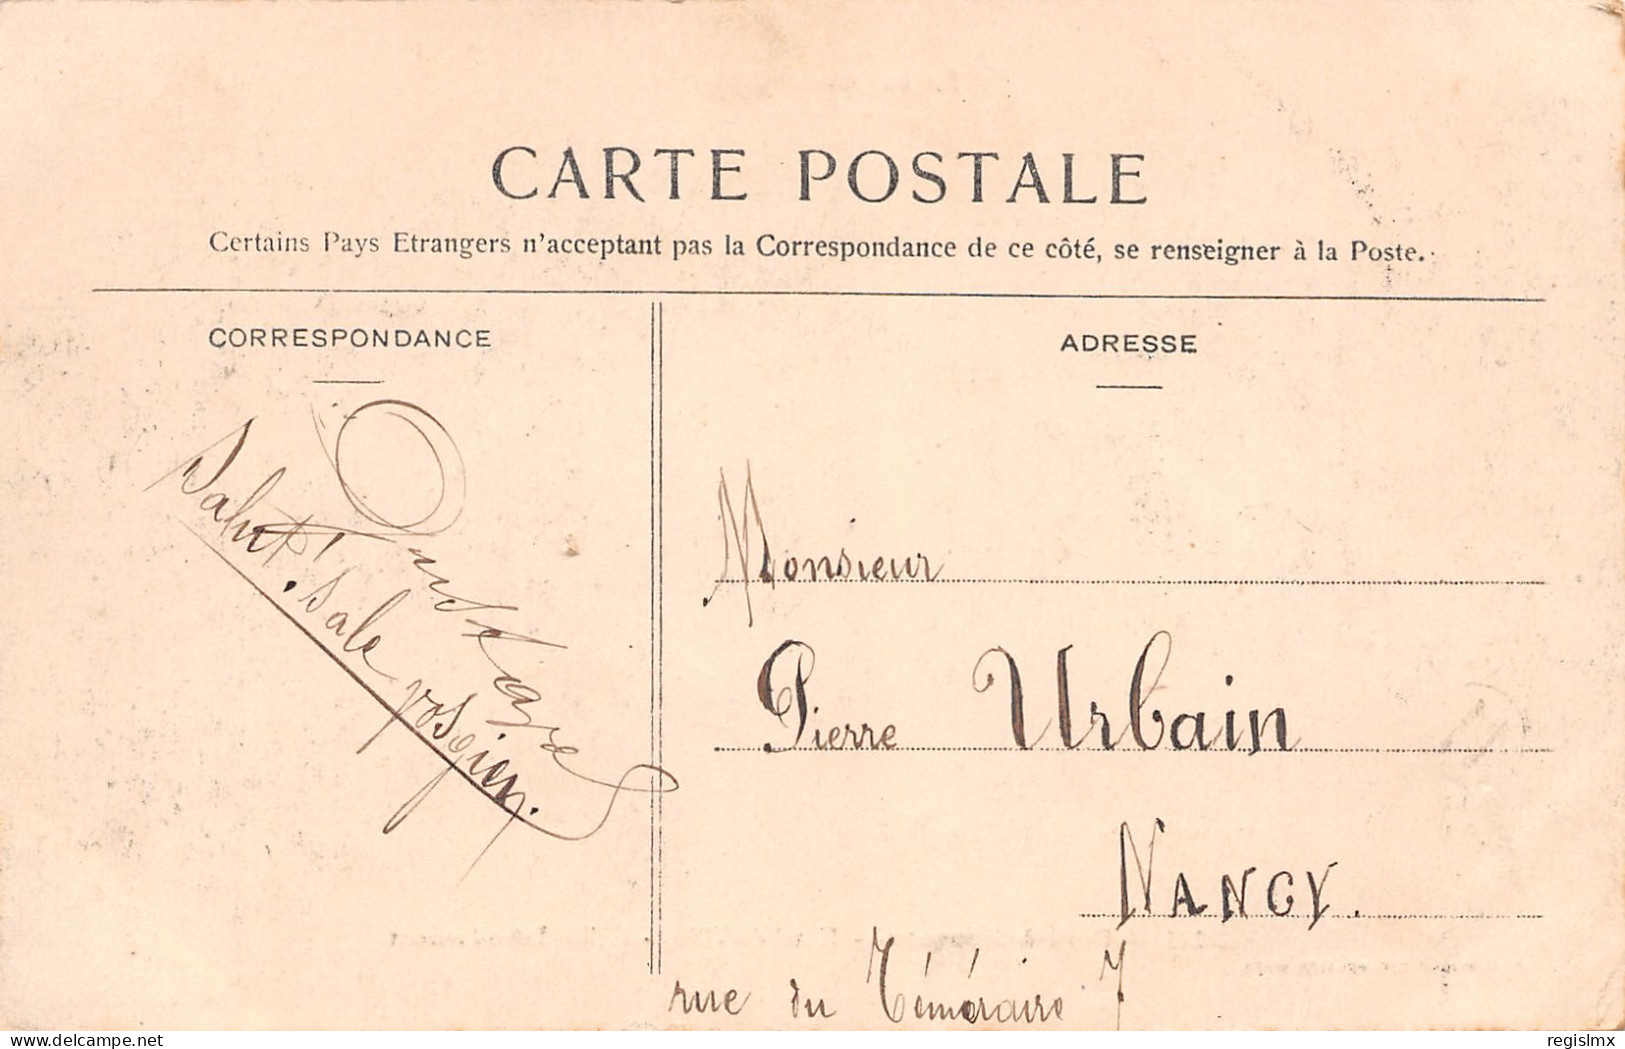 CARTE POSTALE
Certains Pays Etrangers n'acceptant pas la Correspondance de ce côté, se renseigner à la Poste.
CORRESPONDANCE
Salut! sale
vosgien.
ADRESSE
Monsieur
Pierre Urbain
NANCY.
rue du Téméraire 7
regislmx
delcampe.net